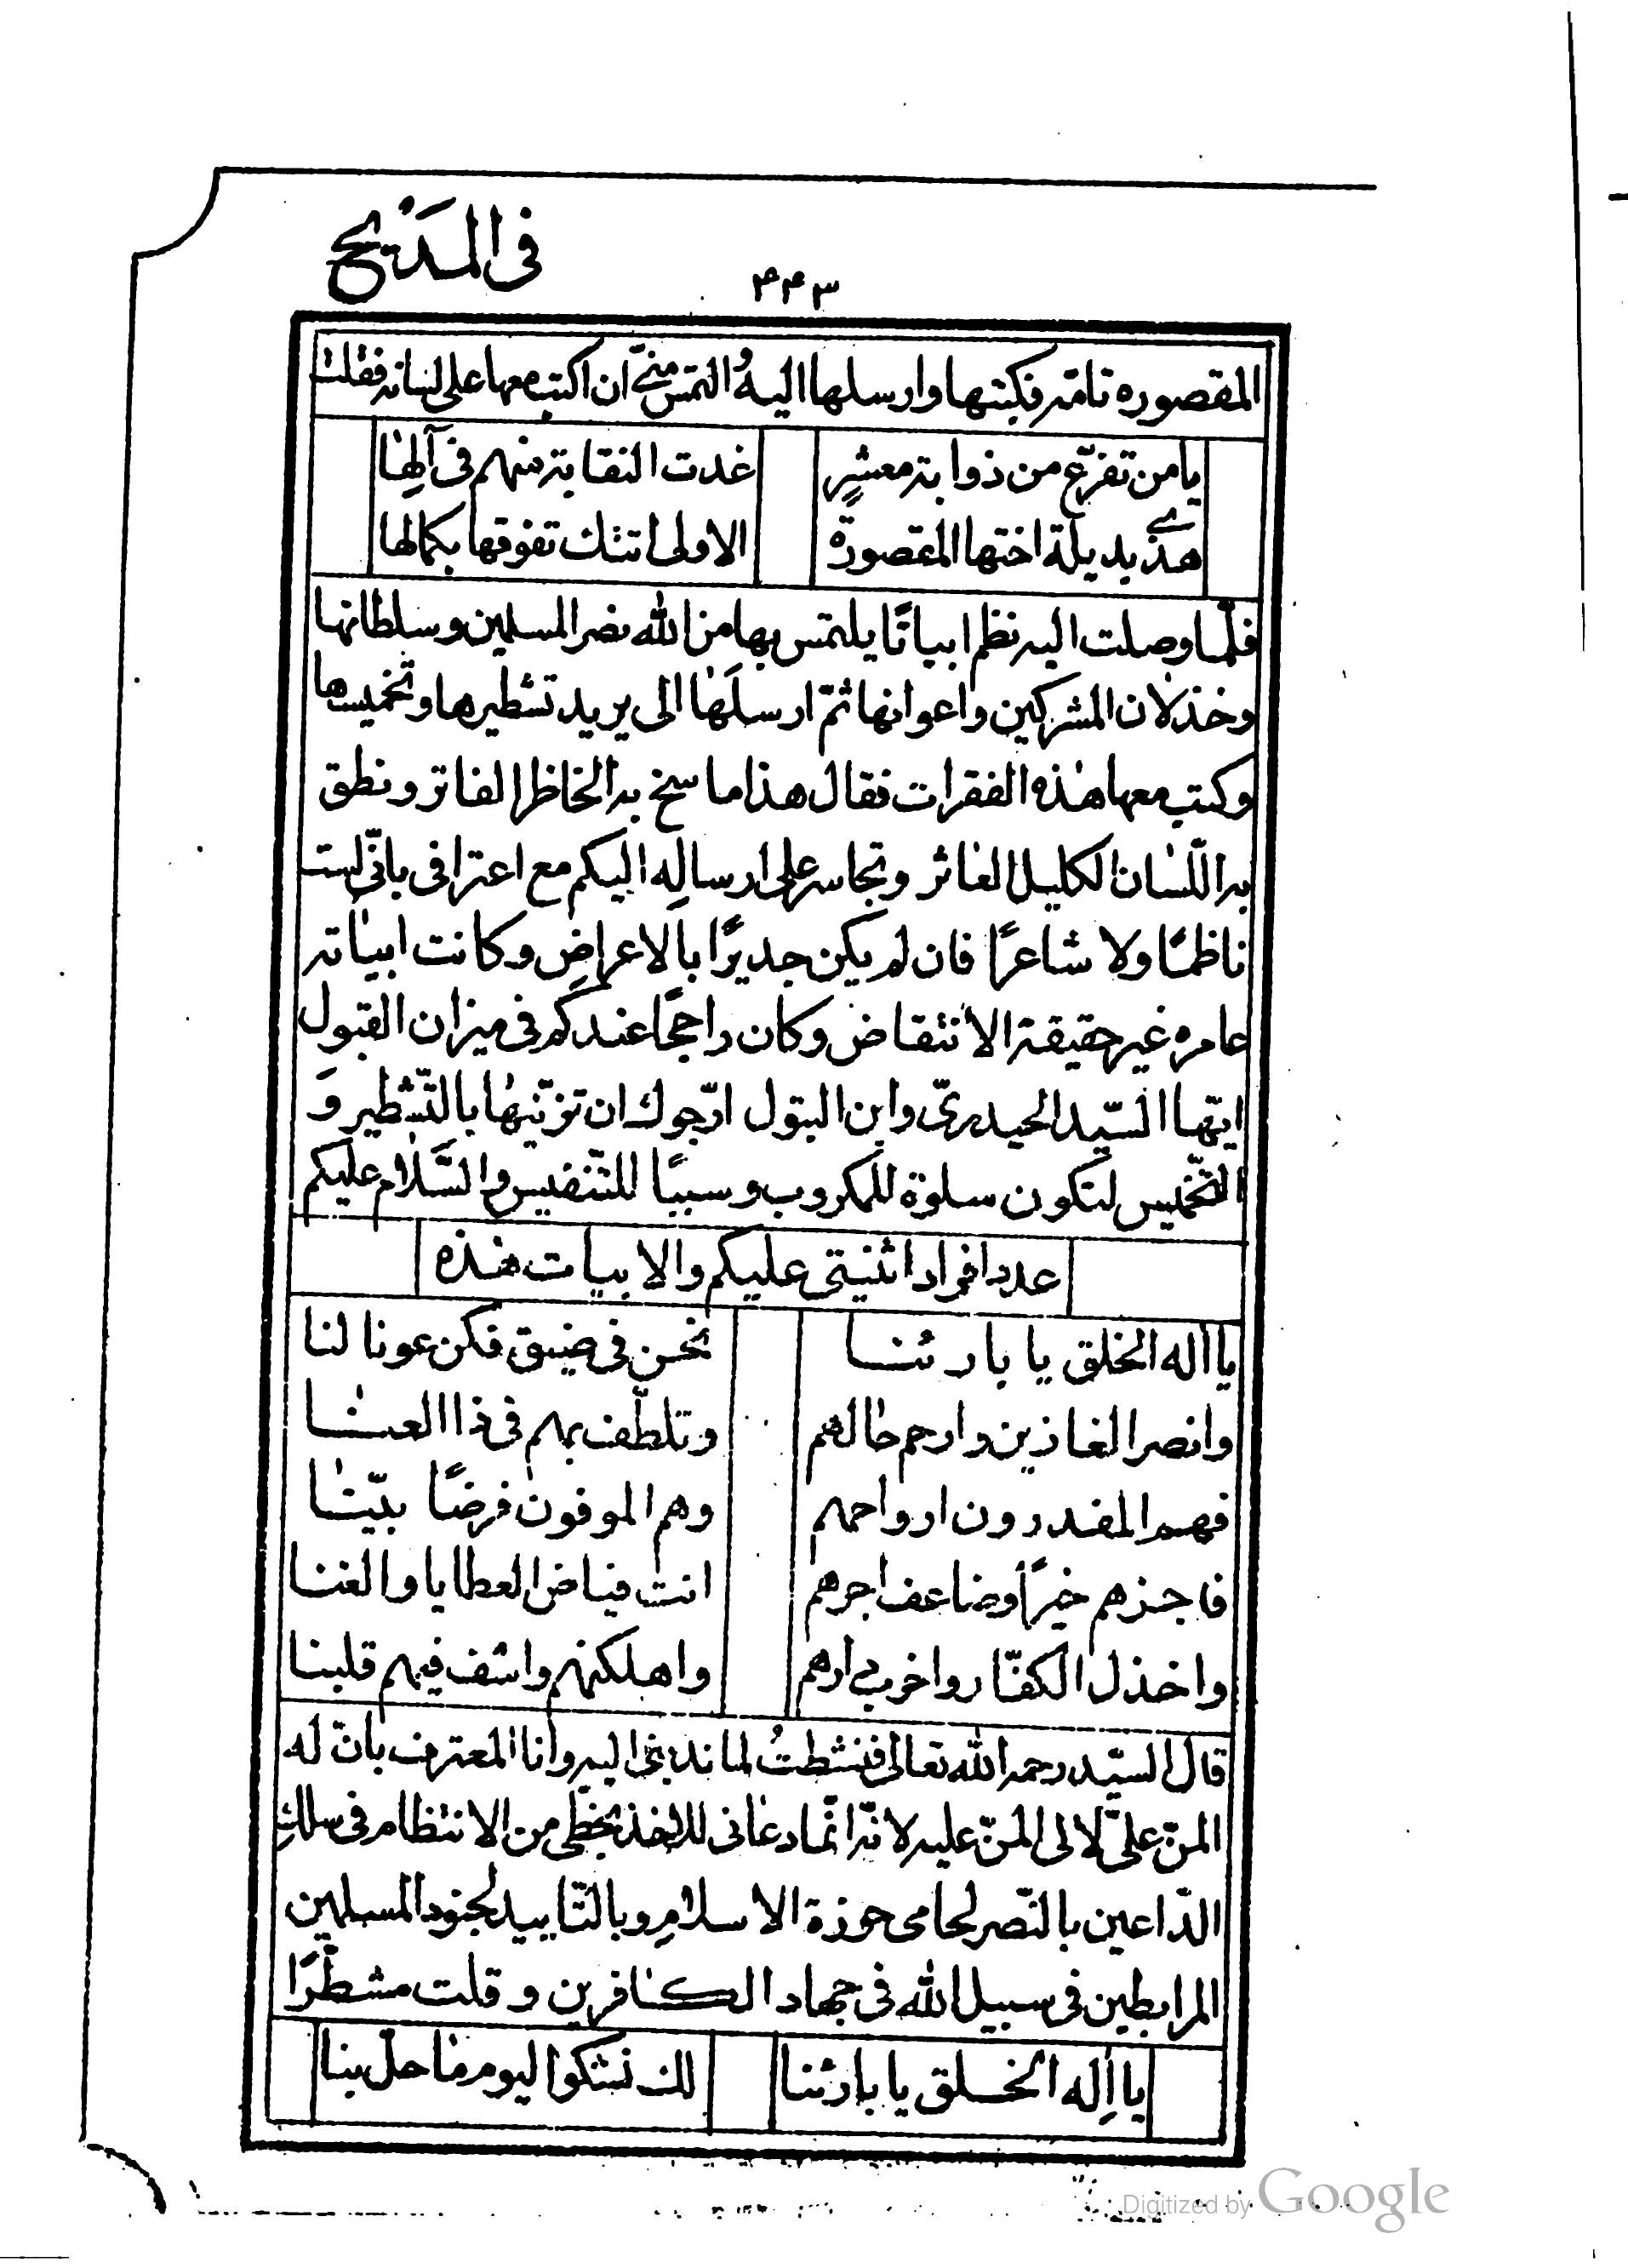 فى المَديح
٤٤٣
المقصوره تامّه فكتبتها وارسلها اليه التمس منّي ان اكتب معها على لسانه فقلت
يا من تفرّع من ذوابة معشرٍ غدت النقابة منهم فى آلها
هذي بديلة اختها المقصورة الاولى اتتك تفوقها بكمالها
فلّما وصلت اليه نظم ابياتًا يلتمس بها من الله نصر المسلمين وسلطانها
وخذلان المشركين واعوانها ثمّ ارسلَها الى يريد تشطيرها وتخميسها
وكتب معها هذه الفقرات فقال هذا ما سخ به الخاطر الفاتر ونطق
به اللّسان الكليل العاثر وتجاسر على ارسالِه اليكم مع اعترافى بانّى لست
ناظمًا ولا شاعرًا فان لم يكن جديرًا بالاعراضِ وكانت ابياته
عامره غير حقيقة الانتقاض وكان راجحًا عندكم فى ميزان القبول
ايّها السّيد الحيدرىّ وابن البتول ارجوك ان تزيّنها بالتّشطير وَ
التّخميس لتكون سلوة للمكروب وسببًا للتّنفيس والسَّلام عليكم
عدد افراد اثنيتى عليكم والابيات هذه
يا اله الخلق يا بارئنا نحن فى ضيق فكن عونا لنا
وانصر الغازين وارحم حالهم وتلطّف بهم فى ذا العنا
فهم المفدون ارواحهم وهم الموفون فرضًا بيّنا
فاجزهم خيرًا وضاعف اجرهم انت فياض العطايا والغنا
واخذل الكفّار واخرب دارهم واهلكنهم واشف فيهم قلبنا
قال السّيد رحمه الله تعالى فنشطتُ لما ندبنى اليه وانا المعترف بان له
المنّ علىّ لا لى المنّ عليه لانّه انّما دعانى للاخذ بحظّى من الانتظام فى سلكِ
الدّاعين بالنّصر لحامى حوزة الاسلامِ وبالتّاييد لجنود المسلمين
المرابطين فى سبيل الله فى جهاد الكافرين وقلت مشطّرًا
يا اِله الخلق يا بارئنا لك نشكوا اليوم ما حلّ بنا
Digitized by Google